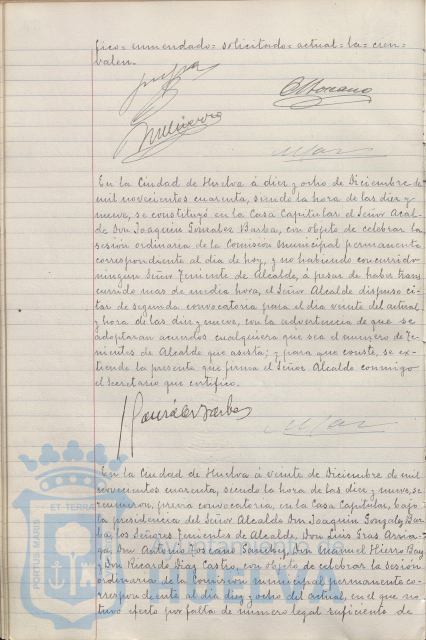 fico = enmendado = solicitado = actual = la = cien =
valen.
En la Ciudad de Huelva á diez y ocho de Diciembre de
mil novecientos cuarenta, siendo la hora de las diez y
nueve, se constituyó en la Casa Capitular el Señor Acal-
de Don Joaquin Gonzalez Barba, con objeto de celebrar la
sesión ordinaria de la Comisión municipal permanente
correspondiente al dia de hoy, y no habiendo concurrido
ningun Señor Teniente de Alcalde, á pesar de haber trans
currido mas de media hora, el Señor Alcalde dispuso ci-
tar de segunda convocatoria para el dia veinte del actual
y hora de las diez y nueve, con la advertencia de que se
adoptaran acuerdos cualquiera que sea el numero de Te-
nientes de Alcalde que asista; y para que conste, se ex-
tiende la presente que firma el Señor Alcalde conmigo
el Secretario que certifico.
González Barba
En la Ciudad de Huelva á veinte de Diciembre de mil
novecientos cuarenta, siendo la hora de las diez y nueve, se
reunieron, previa convocatoria, en la Casa Capitular, bajo
la presidencia del Señor Alcalde Don Joaquin Gonzalez Bar
ba, los Señores Tenientes de Alcalde, Don Luis
Don Antonio Toscano Sanchez, Don Manuel Hierro
y Don Ricardo Diaz Castro, con objeto de celebrar la sesión
ordinaria de la Comisión municipal permanente co-
rrespondiente al dia diez y ocho del actual, en el que no
tuvo efecto por falta de numero legal suficiente de
PORTUS MARIS
ET TERRAE